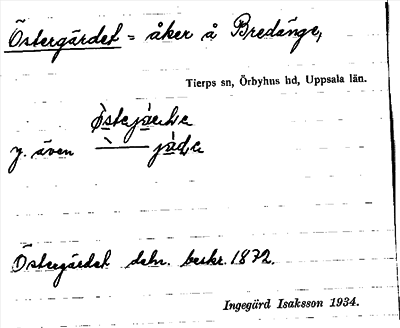 Östergärdet = åker å Bredänge,
Tierps sn, Örbyhus hd, Uppsala län.
y. även
Östergärdet debr. beskr. 1872.
Ingegärd Isaksson 1934.